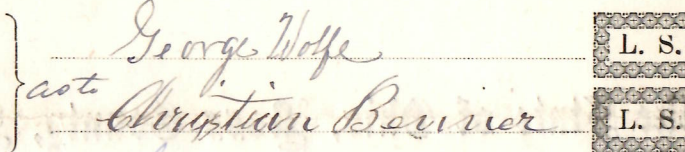 George Wolfe L. S.
as to
Christian Benner L. S.